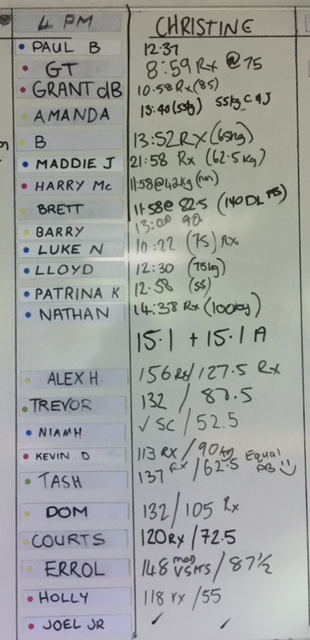 4 PM CHRISTINE
PAUL B 12:37
GT 8:59 Rx @ 75
GRANT dB 10:58 Rx (85)
AMANDA 13:40 (55kg) 55kg C & J
B 13:52 RX (65kg)
MADDIE J 21:58 Rx (62.5kg)
HARRY Mc 11:58 @ 42kg (run)
BRETT 11:58 @ 82.5 (140 DL PB)
BARRY 13:00 90
LUKE N 10:22 (75) Rx
LLOYD 12:30 (75kg)
PATRINA K 12:58 (55)
NATHAN 14:38 Rx (100kg)
15.1 + 15.1 A
ALEX H 156 Rx / 127.5 Rx
TREVOR 132 / 87.5
NIAMH ✓ SC / 52.5
KEVIN D 113 RX / 90kg Equal
TASH 137 RX / 62.5 PB
DOM 132 / 105 Rx
COURTS 120 RX / 72.5
ERROL 148 mod / 87 1/2
HOLLY 118 rx / 55
JOEL JR ✓ ✓